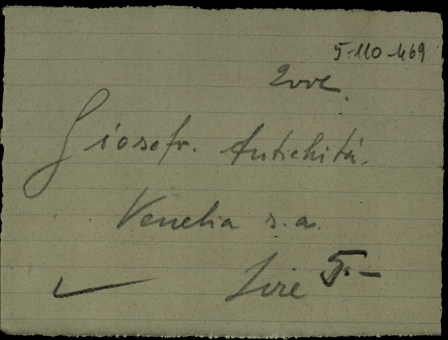 5-110-469
Giosefv. Antichità.
Venetia s.a.
Lire 5.-